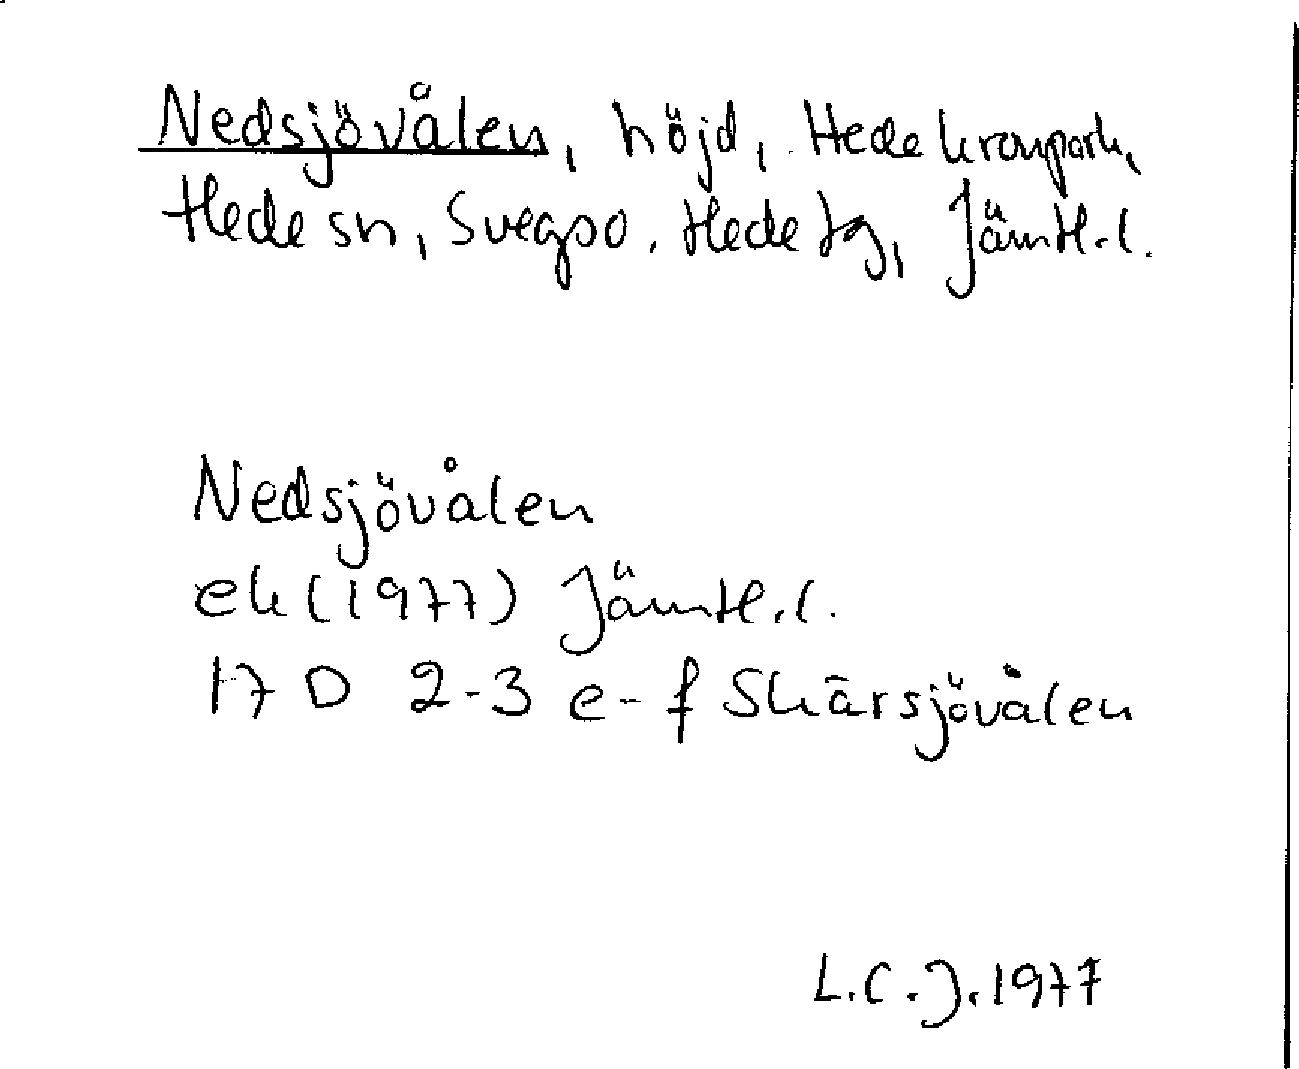 Nedsjövålen, höjd, Hede kronpark,
Hede sn, Svegs po. Hede tg, Jämtl. l.
Nedsjövålen
ek (1977) Jämtl. l.
17 D 2-3 e-f Skärsjövålen
L.C.J. 1977